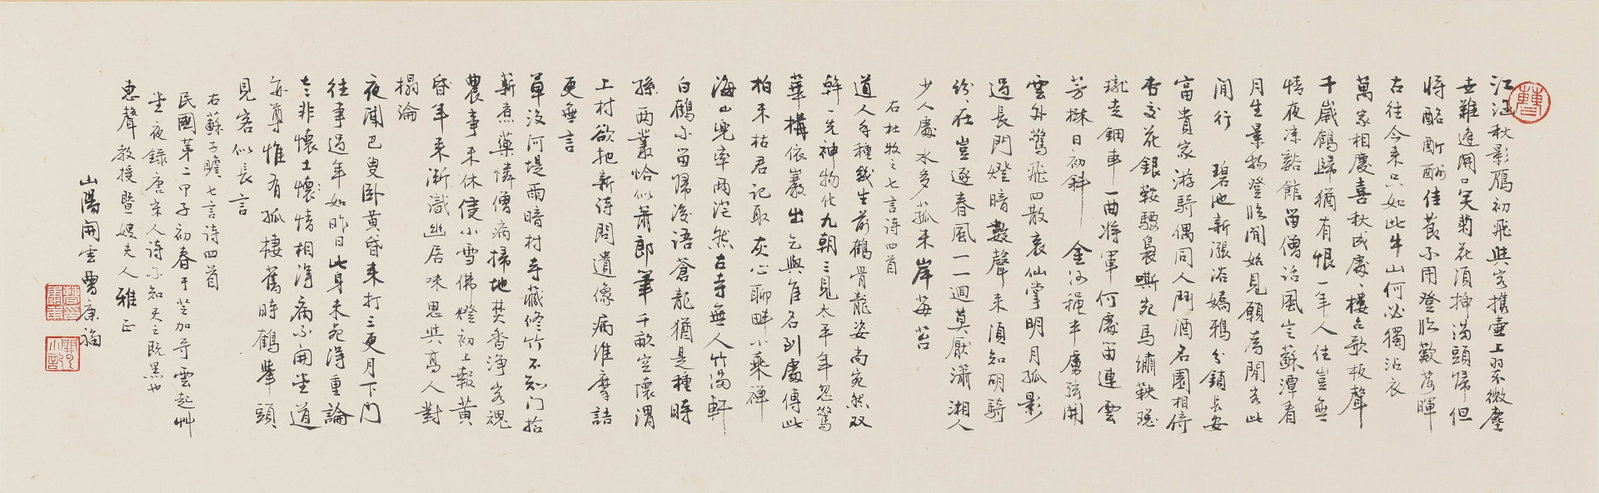 江涵秋影雁初飛與客攜壺上翠微塵
世難逢開口笑菊花須插滿頭歸但
將酩酊酬佳節不用登臨歎落暉
古往今來只如此牛山何必獨沾衣
萬家相慶喜秋成處處樓臺歌板聲
千歲鶴歸猶有恨一年人住豈無
情夜涼谿館留僧話風定蘇潭看
月生景物登臨閒始見願為閒客此
閒行 碧池新漲浴嬌鴉分鎖長安
富貴家游騎偶同人鬥酒名園相倚
杏交花銀鞍騕褭嘶宛馬繡鞅璁
瓏走鈿車一曲將軍何處笛連雲
芳樹日初斜 金河穐半虜弦開
雲外驚飛四散哀仙掌明月孤影
過長門燈暗數聲來須知胡騎
紛紛在豈逐春風一一迴莫厭瀟湘人
少人處水多菰米岸莓苔
右杜牧之七言詩四首
道人手種幾生前鶴骨龍姿尚宛然雙
幹先神物化九朝三見太平年忽驚
華構依巖出乞與佳名到處傳此
柏未枯君記取灰心聊伴小乘禪
海山兜率兩茫然古寺無人竹滿軒
白鶴不留歸後語蒼龍猶是種時
孫兩叢恰似蕭郎筆千畝空懷渭
上村欲把新詩問遺像病維摩詰
更無言
草沒河堤雨暗村寺藏修竹不知門拾
薪煮藥憐僧病掃地焚香淨客魂
農事未休侵小雪佛燈初上報黃
昏年來漸識幽居味思與高人對
榻論
夜聞已叟臥黃昏來打三更月下門
往事過年如昨日此身未死得重論
老非懷土情相得病不開堂道
益尊惟有孤棲舊時鶴舉頭
見客似長言
右蘇子瞻七言詩四首
民國第二甲子初春于芝加哥雲起艸
堂夜錄唐宋人詩不知天之既黑也
惠聲教授暨嫂夫人雅正
山陽開雲曹康